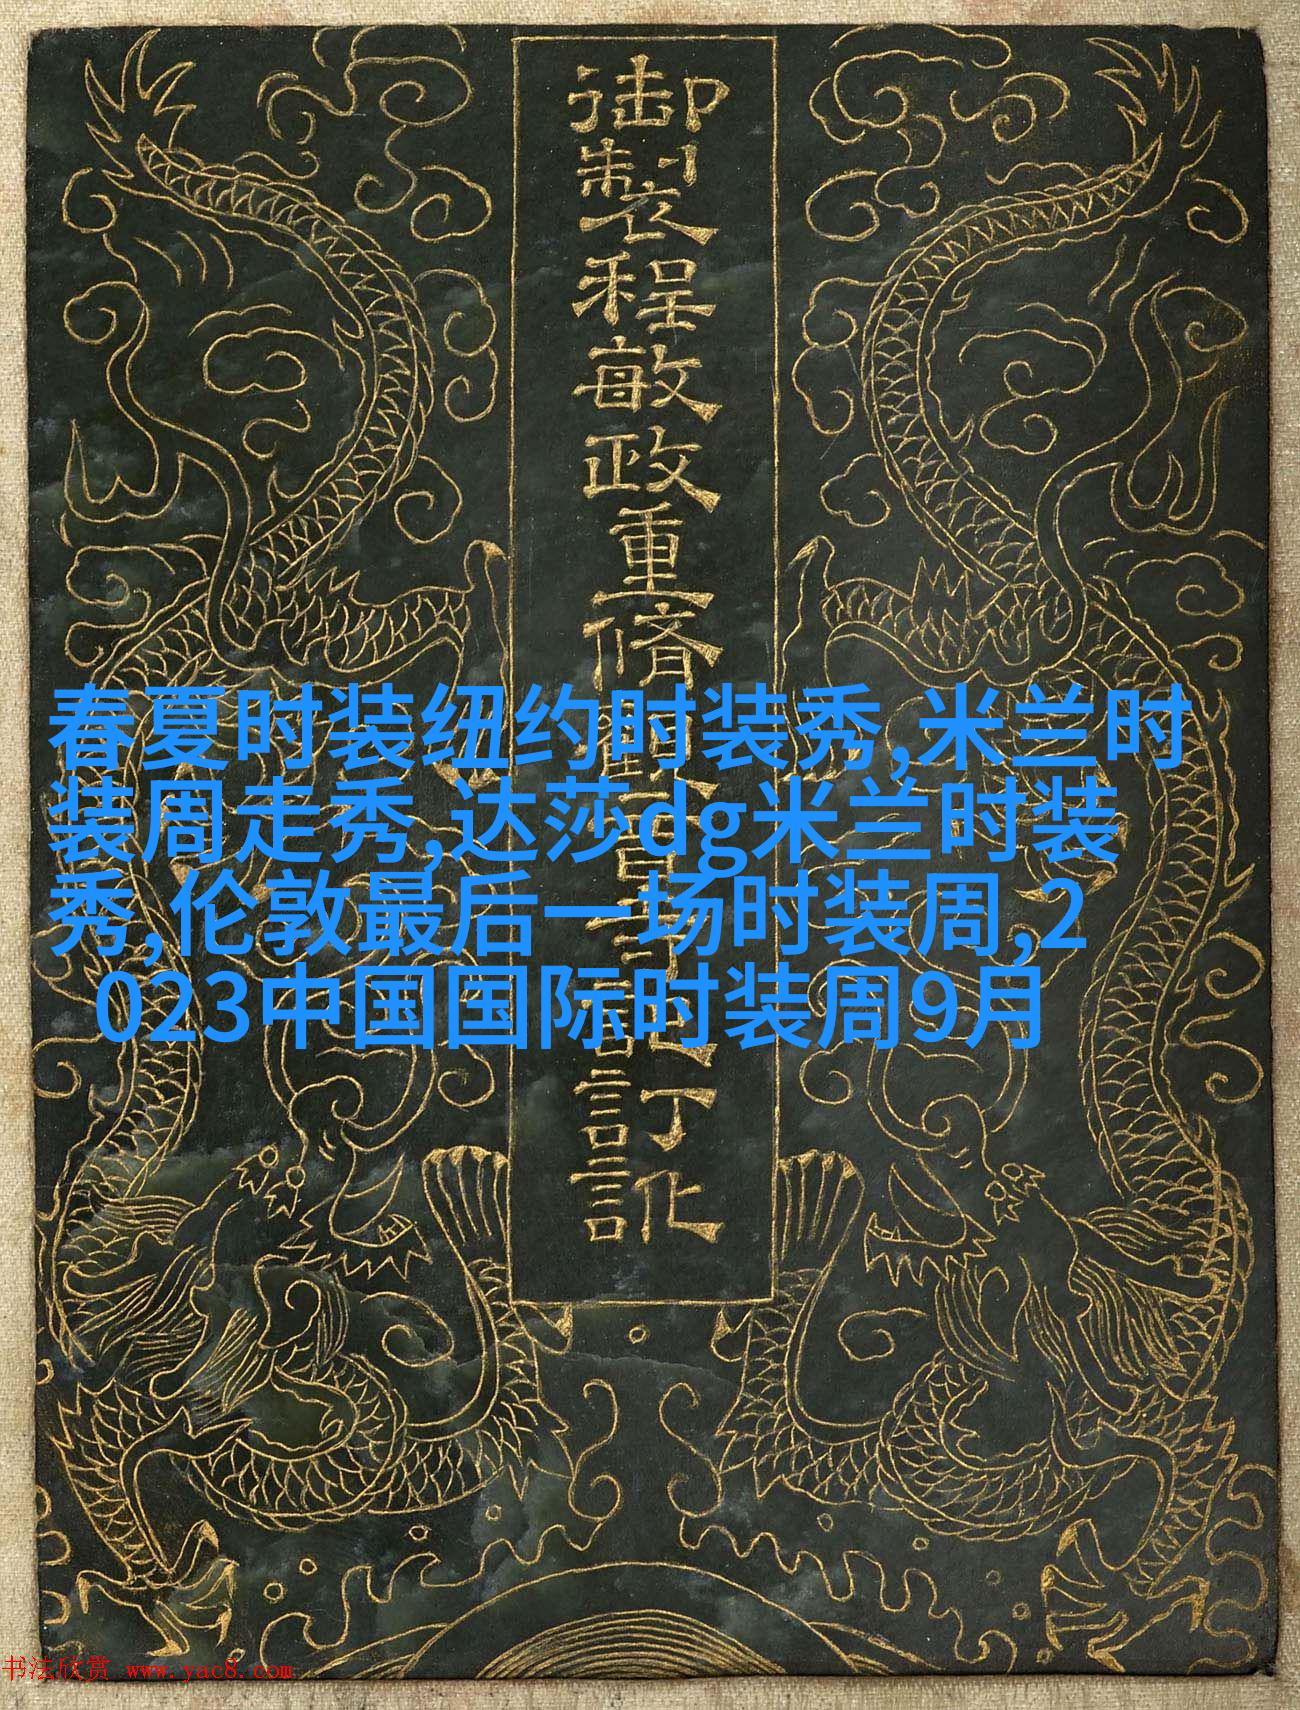 御製程敏政重脩訂訛
春夏时装纽约时装秀,米兰时
装周走秀,达莎dg米兰时装
秀,伦敦最后一场时装周,2
023中国国际时装周9月
书法欣赏 www.yac8.com